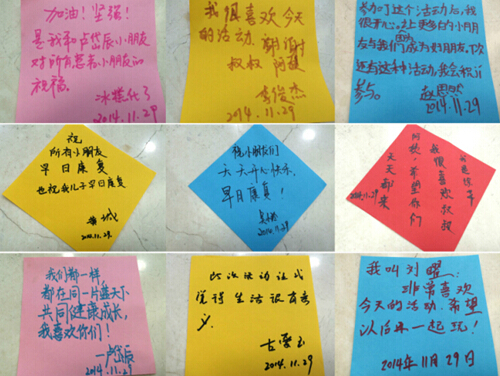 加油！坚强！
是我和卢岱辰小朋友
对所有患者小朋友的
祝福。
冰糕化了
2014.11.29
我很喜欢今天
的活动.谢谢
叔叔 阿姨
李俊杰
2014.11.29
参加了这个活动后,我
很开心.
友与我们成为好朋友.下次
还有这种活动,我会积极
参与。
2014.11.29
祝
所有小朋友
早日康复
也祝我儿子早日康复
2014.11.29
祝小朋友们
天天开心快乐,
早日康复!
2014.11.29
我很喜欢叔叔
阿姨,希望你们
天天都来
2014.11.29
我们都一样
都在同一片蓝天下
共同健康成长,
我喜欢你们!
—卢岱辰
2014.11.29
觉得生活很有意
义.
2014.11.29
我叫刘曜,
非常喜欢
今天的活动.希望
以后来一起玩!
2014年11月29日